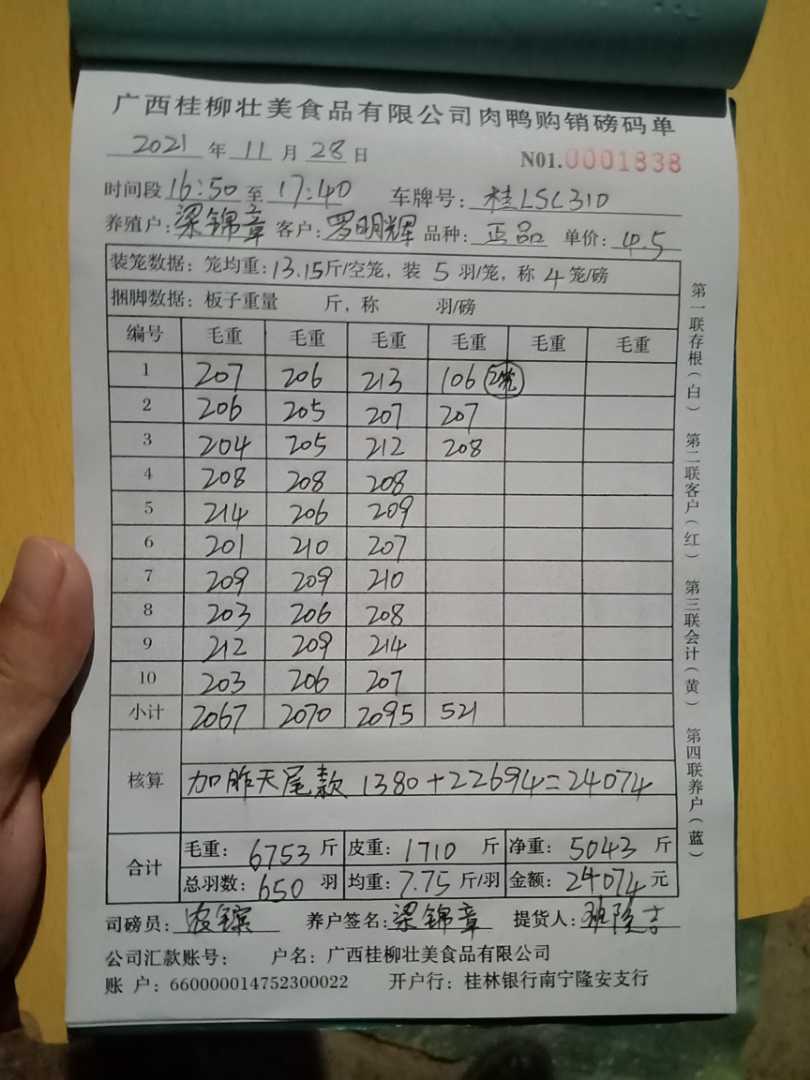 广西桂柳壮美食品有限公司肉鸭购销磅码单
2021 年 11 月 28 日 N01.0001838
时间段 16:50 至 17:40 车牌号: 桂LSC310
养殖户: 梁锦章 客户: 罗明辉 品种: 正品 单价: 4.5
装笼数据: 笼均重: 13.15 斤/空笼, 装 5 羽/笼, 称 4 笼/磅
捆脚数据: 板子重量 斤, 称 羽/磅
编号 毛重 毛重 毛重 毛重 毛重 毛重
1 207 206 213 106 2笼
2 206 205 207 207
3 204 205 212 208
4 208 208 208
5 214 206 209
6 201 210 207
7 209 209 210
8 203 206 208
9 212 209 214
10 203 206 207
小计 2067 2070 2095 521
核算 加昨天尾款 1380+22694=24074
合计 毛重: 6753 斤 皮重: 1710 斤 净重: 5043 斤
总羽数: 650 羽 均重: 7.75 斤/羽 金额: 24074 元
司磅员: 农镔 养户签名: 梁锦章 提货人:
公司汇款账号: 户名: 广西桂柳壮美食品有限公司
账 户: 660000014752300022 开户行: 桂林银行南宁隆安支行
第一联存根(白) 第二联客户(红) 第三联会计(黄) 第四联养户(蓝)